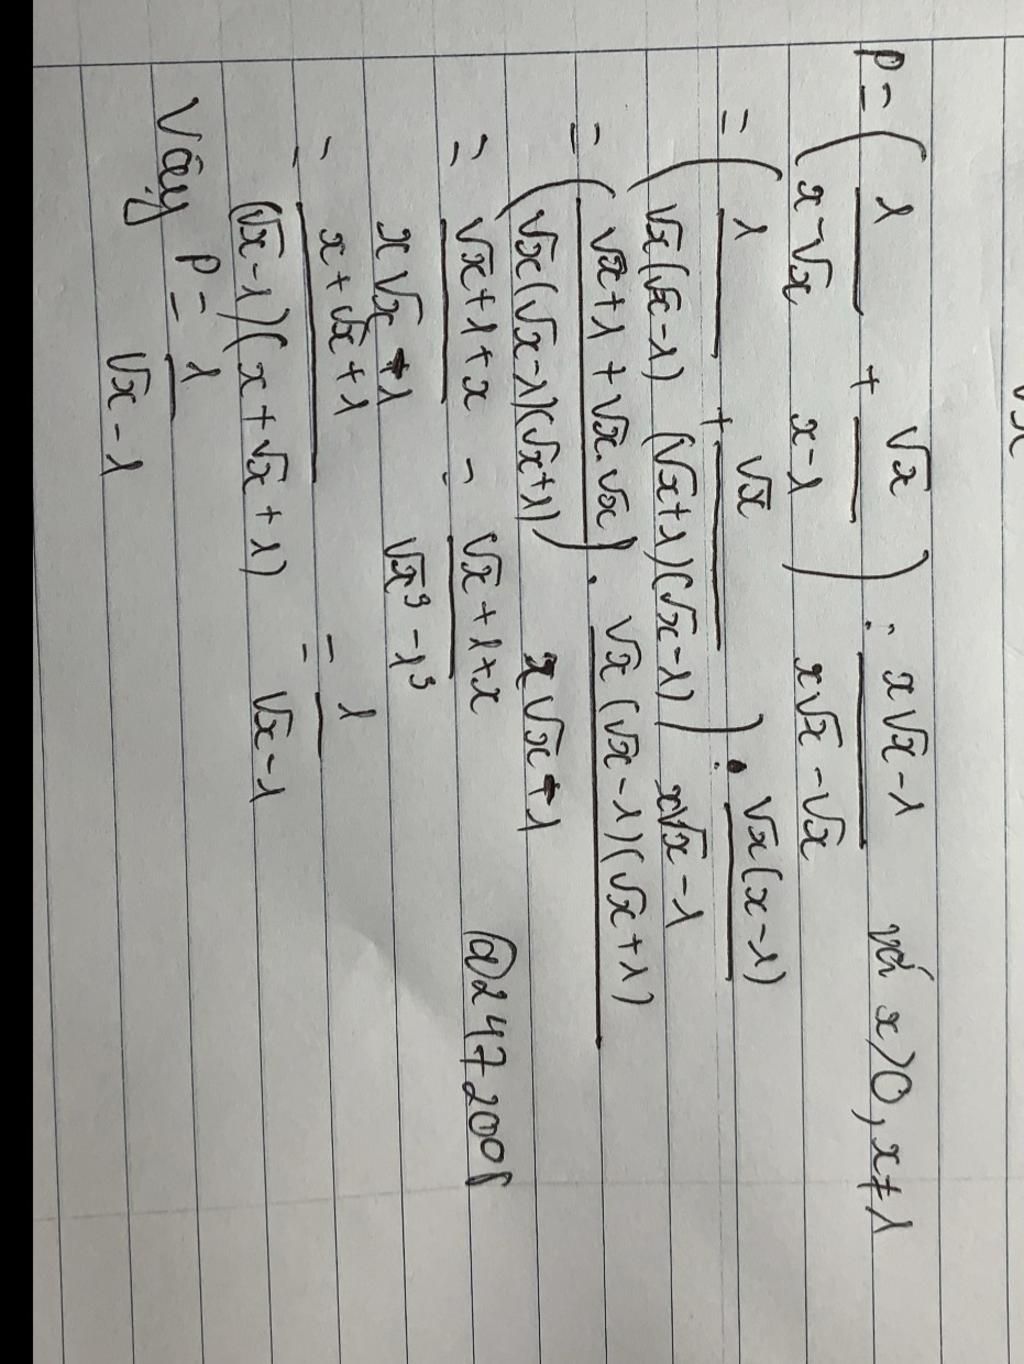 P = ( 1/(x-√x) + √x/(x-1) ) : (x√x-1)/(x√x-√x) với x>0, x≠1
= ( 1/(√x(√x-1)) + √x/((√x+1)(√x-1)) ) . √x(x-1)/(x√x-1)
= ( (√x+1+√x.√x)/(√x(√x-1)(√x+1)) ) . √x(√x-1)(√x+1)/(x√x-1)
= (√x+1+x)/(x√x-1) = (√x+1+x)/(√x³-1³)
= (x+√x+1)/((√x-1)(x+√x+1)) = 1/(√x-1)
Vậy P = 1/(√x-1)